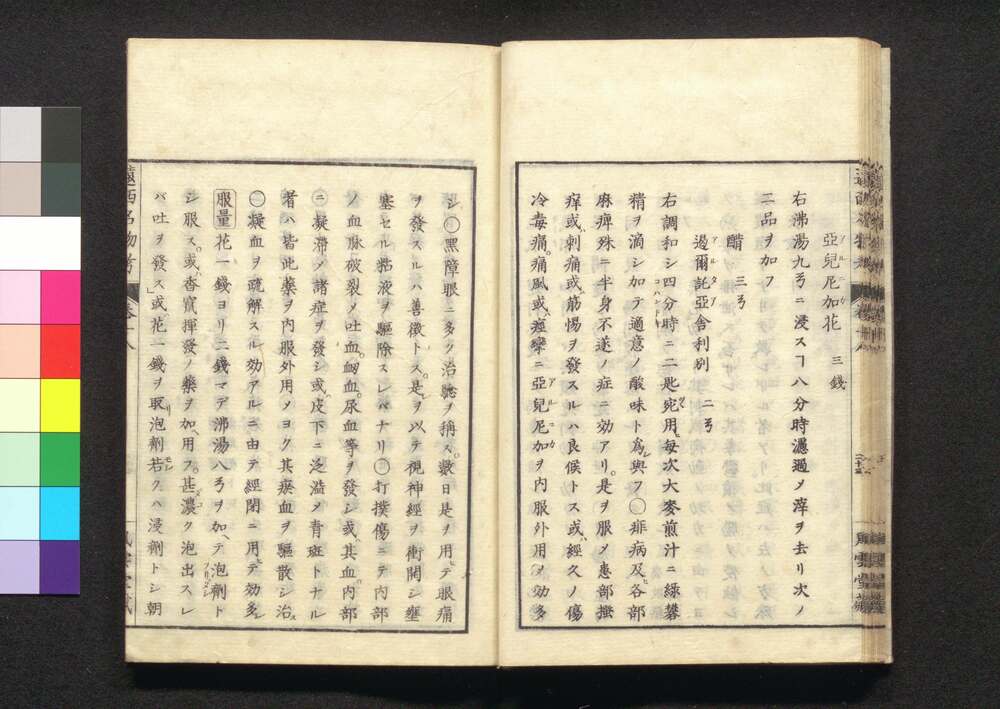 亞兒尼加花 三錢
右沸湯九弓ニ浸スヿ八分時濾過〆滓ヲ去リ次ノ
二品ヲ加フ
醋 三弓
過爾託亞舎利別 二弓
右調和シ四分時ニ二匙宛用ヒ每次大麥煎汁ニ綠礬
精ヲ滴シ加テ適意ノ酸味ト為レ與フ○痱病及ヒ各部
麻痺殊ニ半身不遂ノ症ニ効アリ。是ヲ服〆患部搔
痒或ハ刺痛或ハ筋惕ヲ發スルハ良候トス或ハ經久ノ傷
冷毒痛。痛風或ハ痙攣ニ亞兒尼加ヲ内服外用〆効多
シ○黑障眼ニ多ク治驗ヲ稱ス。數日是ヲ用ヒテ眼痛
ヲ發スルハ善徵トス。是レヲ以テ視神經ヲ衝開シ壅
塞セル粘液ヲ驅除スレバナリ○打撲傷ニテ内部
ノ血脉破裂〆吐血。衂血。尿血等ヲ發シ或ハ其血内部
ニ凝滯〆諸症ヲ發シ或ハ皮下ニ泛溢〆青斑トナル
者ハ皆此藥ヲ内服外用〆ヨク其瘀血ヲ驅散シ治ス
○凝血ヲ疏解スル効アルニ由テ經閉ニ用ヒテ効多シ
服量 花一錢ヨリ二錢マデ沸湯八弓ヲ加ヘテ泡劑ト
シ服ス。或ハ杏竄揮發ノ藥ヲ加ヘ用フ。甚濃ク泡出スレ
バ吐ヲ發ス或ハ花一錢ヲ取リ泡劑若クハ浸劑トシ朝
遠西名物考 卷十八